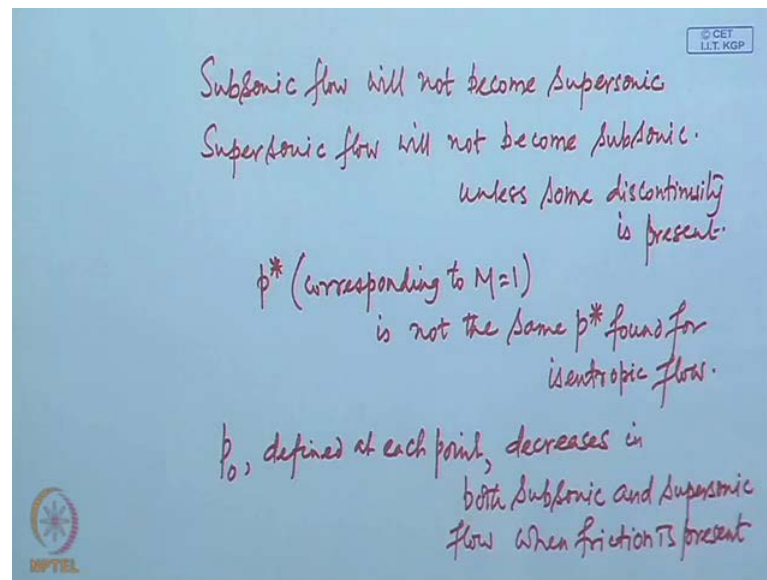 © CET
I.I.T. KGP
Subsonic flow will not become supersonic
Supersonic flow will not become subsonic.
unless some discontinuity
is present.
p* (corresponding to M=1)
is not the same p* found for
isentropic flow.
p₀, defined at each point, decreases in
both subsonic and supersonic
flow when friction is present
NPTEL